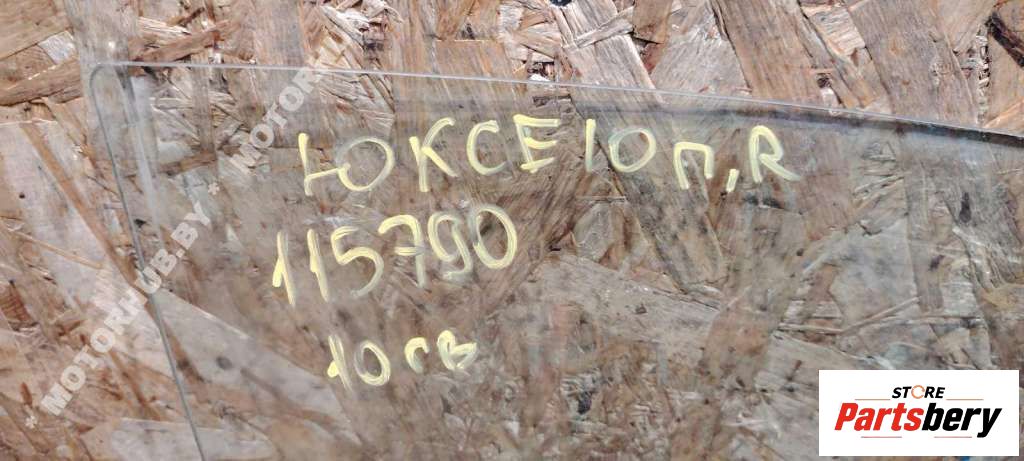 ЮКСЕ 10 П, R
115790
10 св
* MOTORHUB.BY * MOTORH
STORE
Partsbery